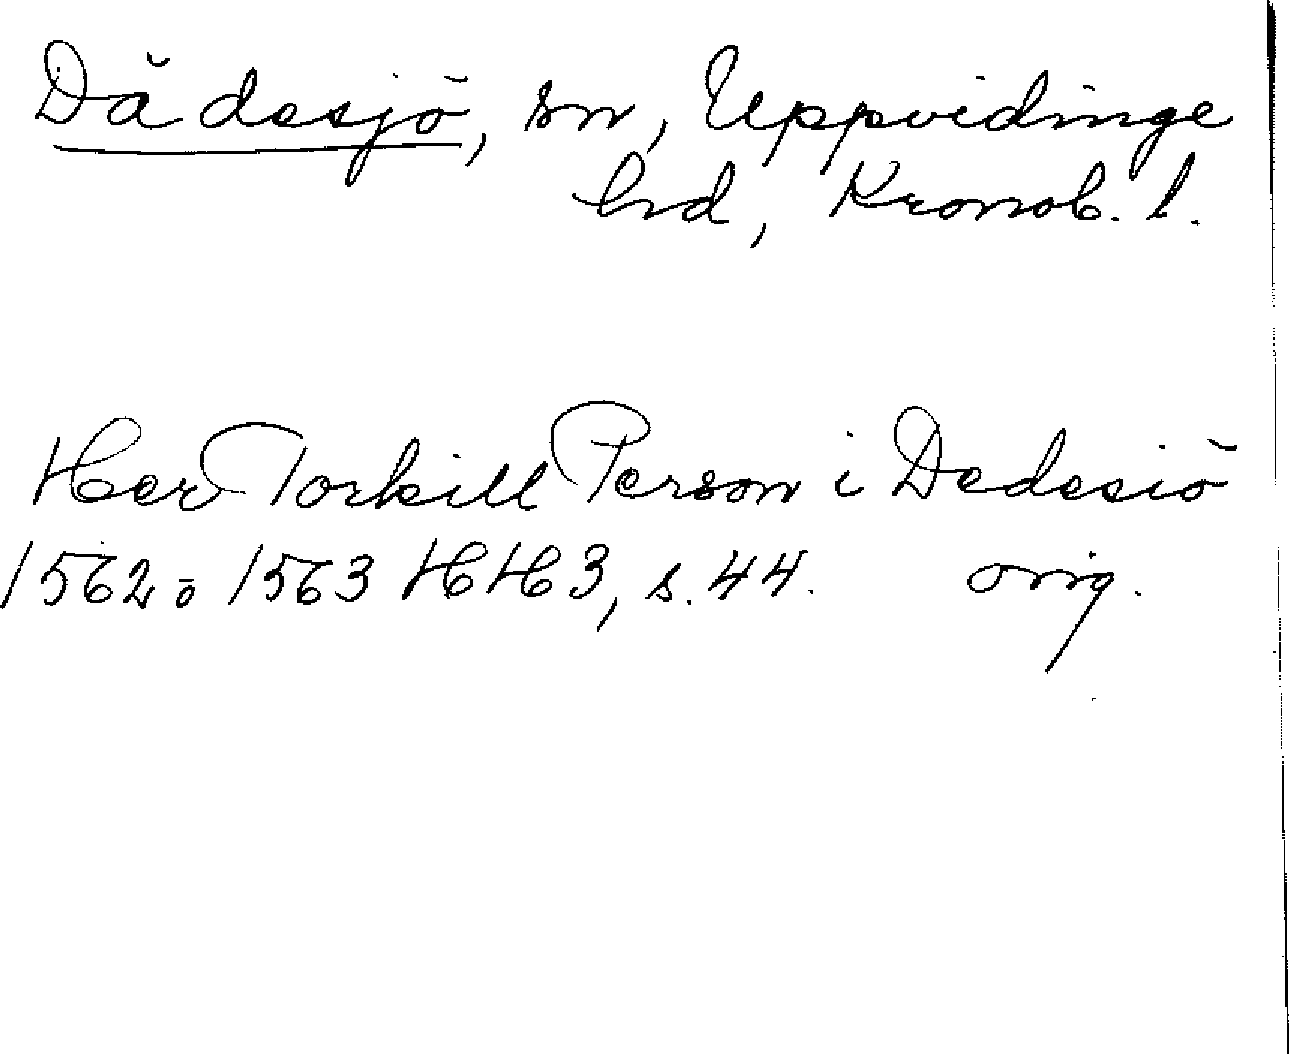 Dädesjö, sn, Uppvidinge
hd, Kronob. l.
Her Torkill Person i Dedesiö
1562 o 1563 HH3, s. 44. orig.